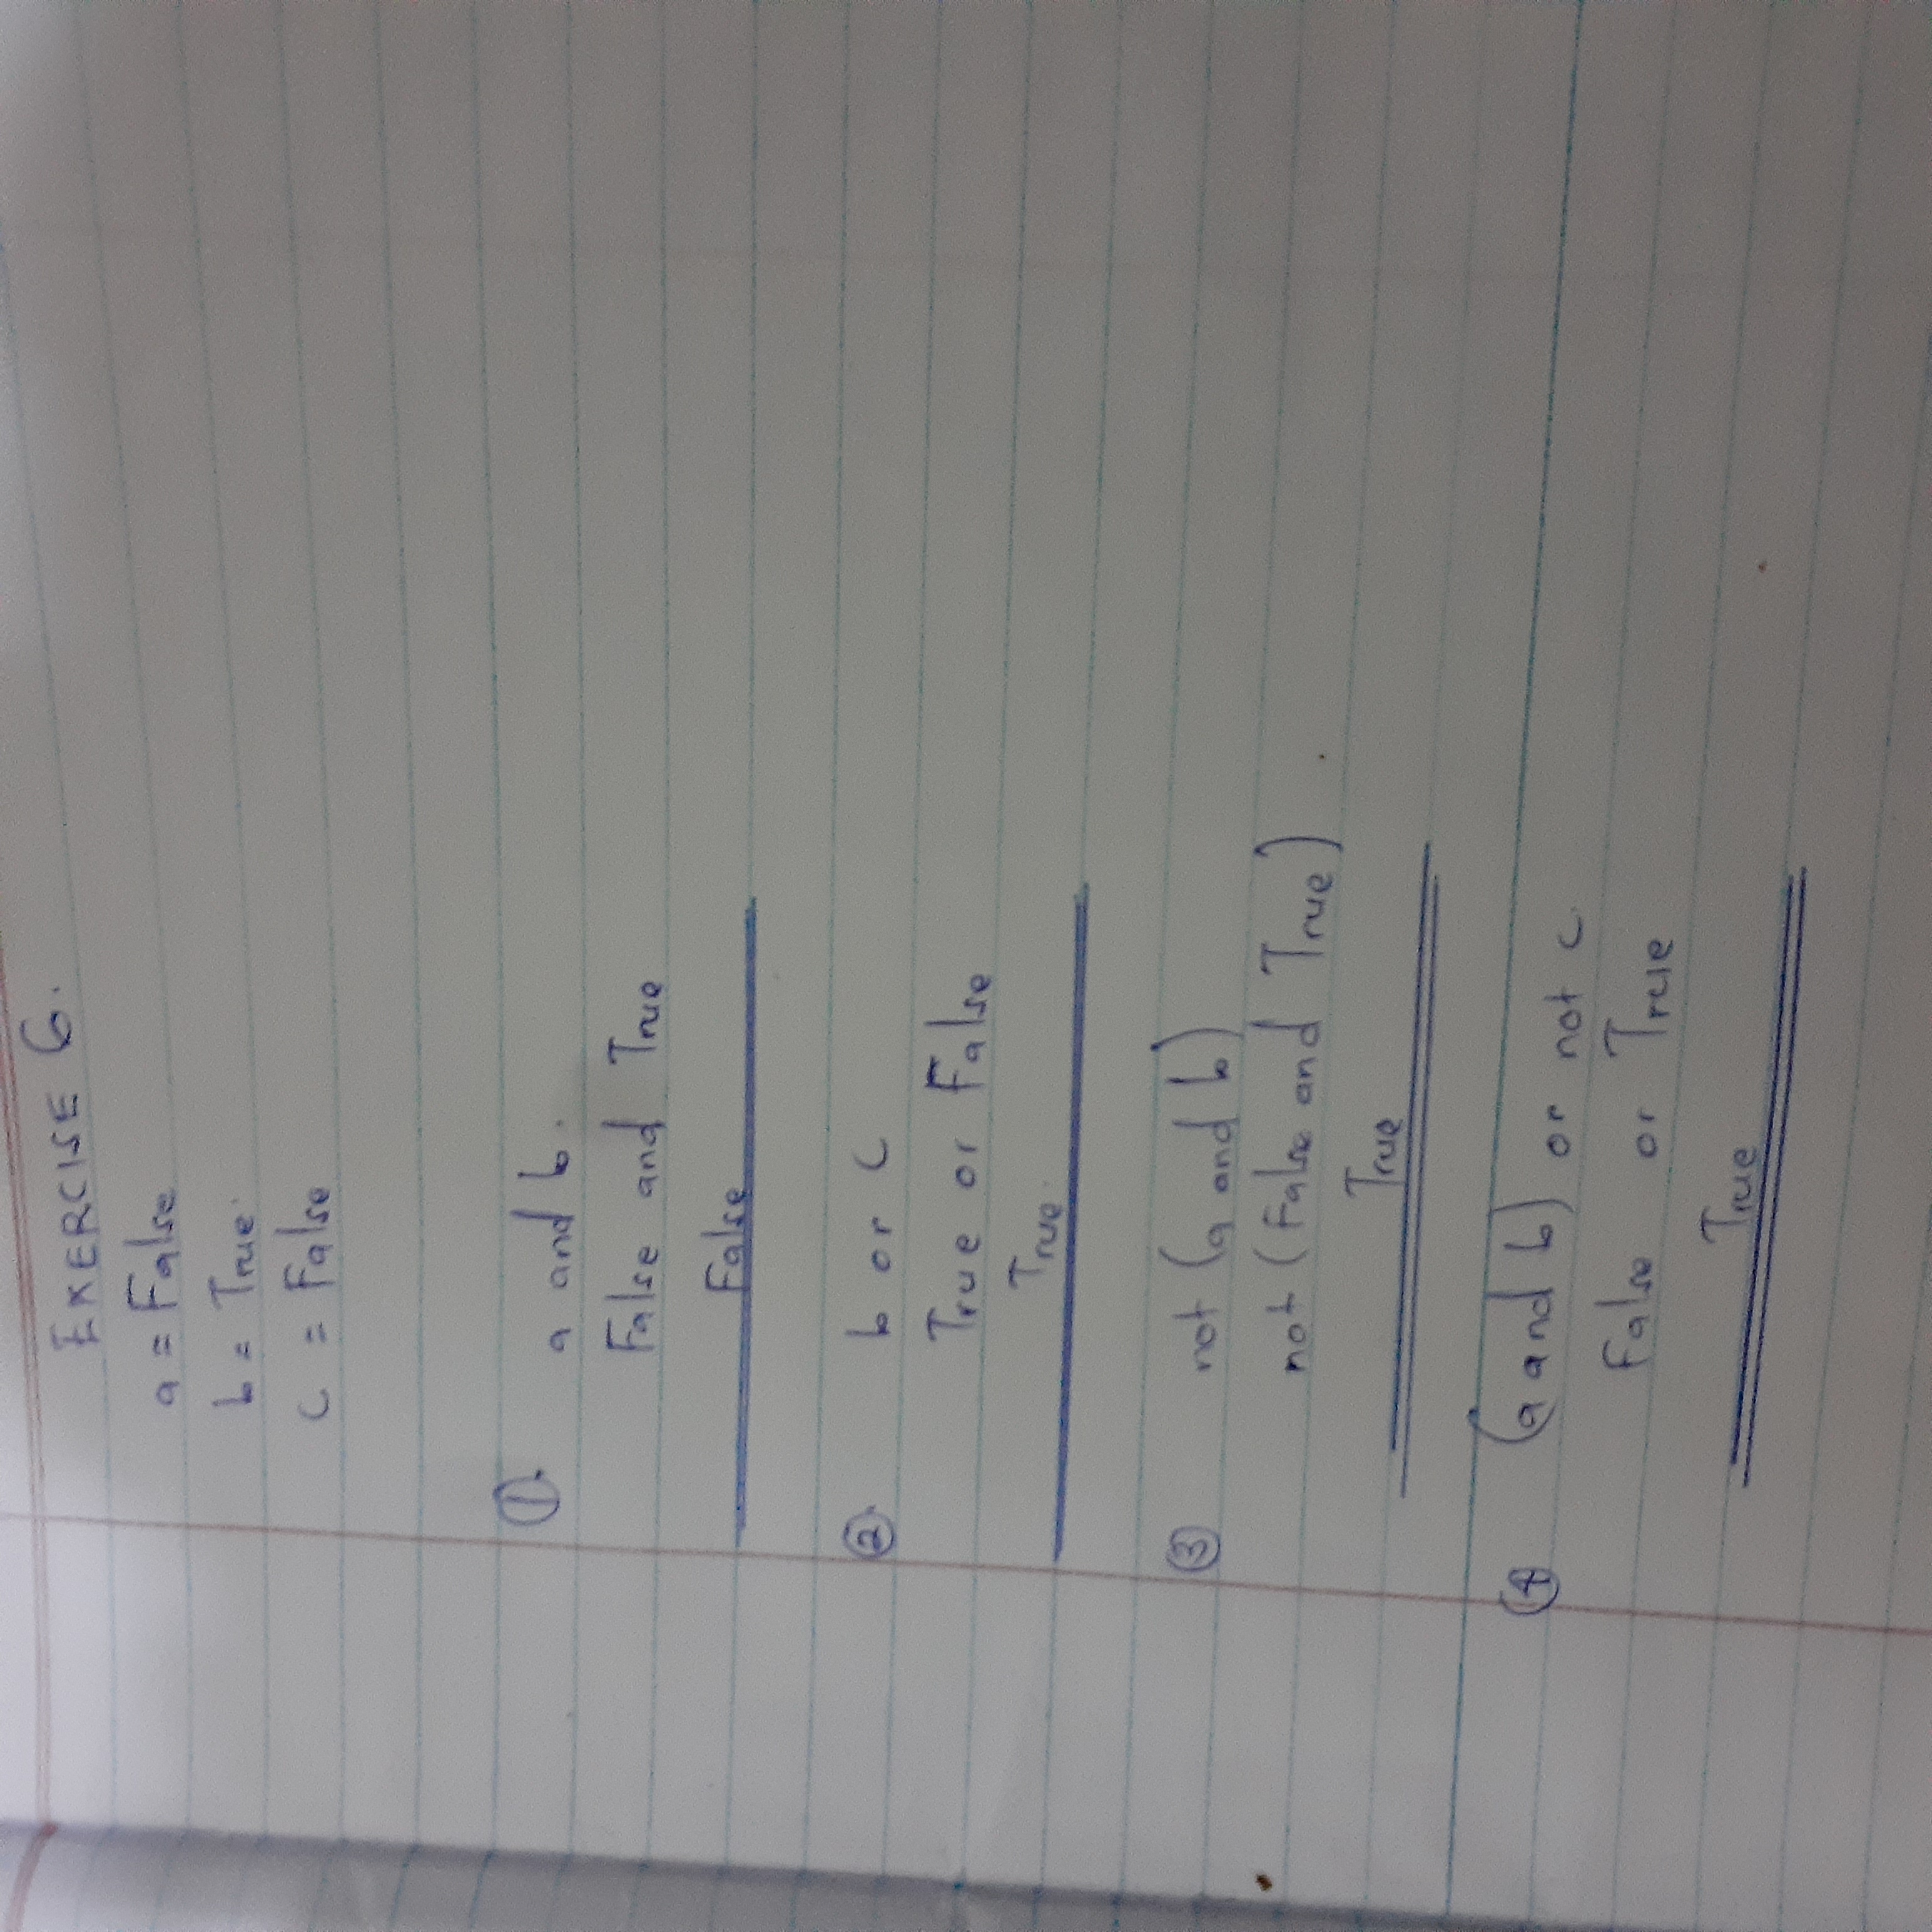 EXERCISE 6.
a = False
b = True
c = False
1. a and b.
False and True
False
2. b or c
True or False
True
3 not (a and b)
not (False and True)
True
4 (a and b) or not c
False or True
True